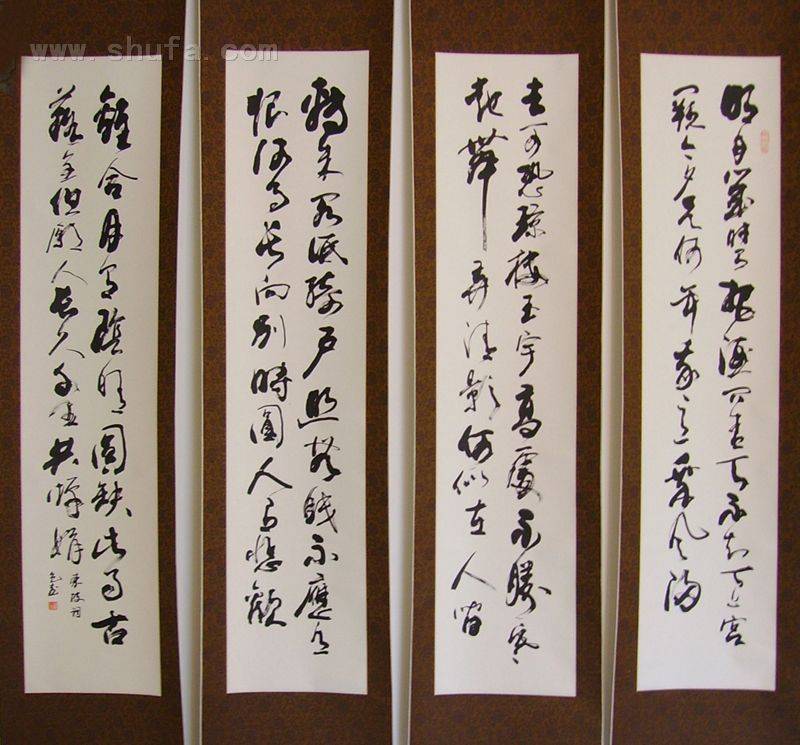 www.shufa.com
明月幾時有把酒問青天不知天上宮
闕今夕是何年我欲乘風歸
去又恐瓊樓玉宇高處不勝寒
起舞弄清影何似在人間
轉朱閣低綺戶照無眠不應有
恨何事長向別時圓人有悲歡
離合月有陰晴圓缺此事古
難全但願人長久千里共嬋娟
東坡詞